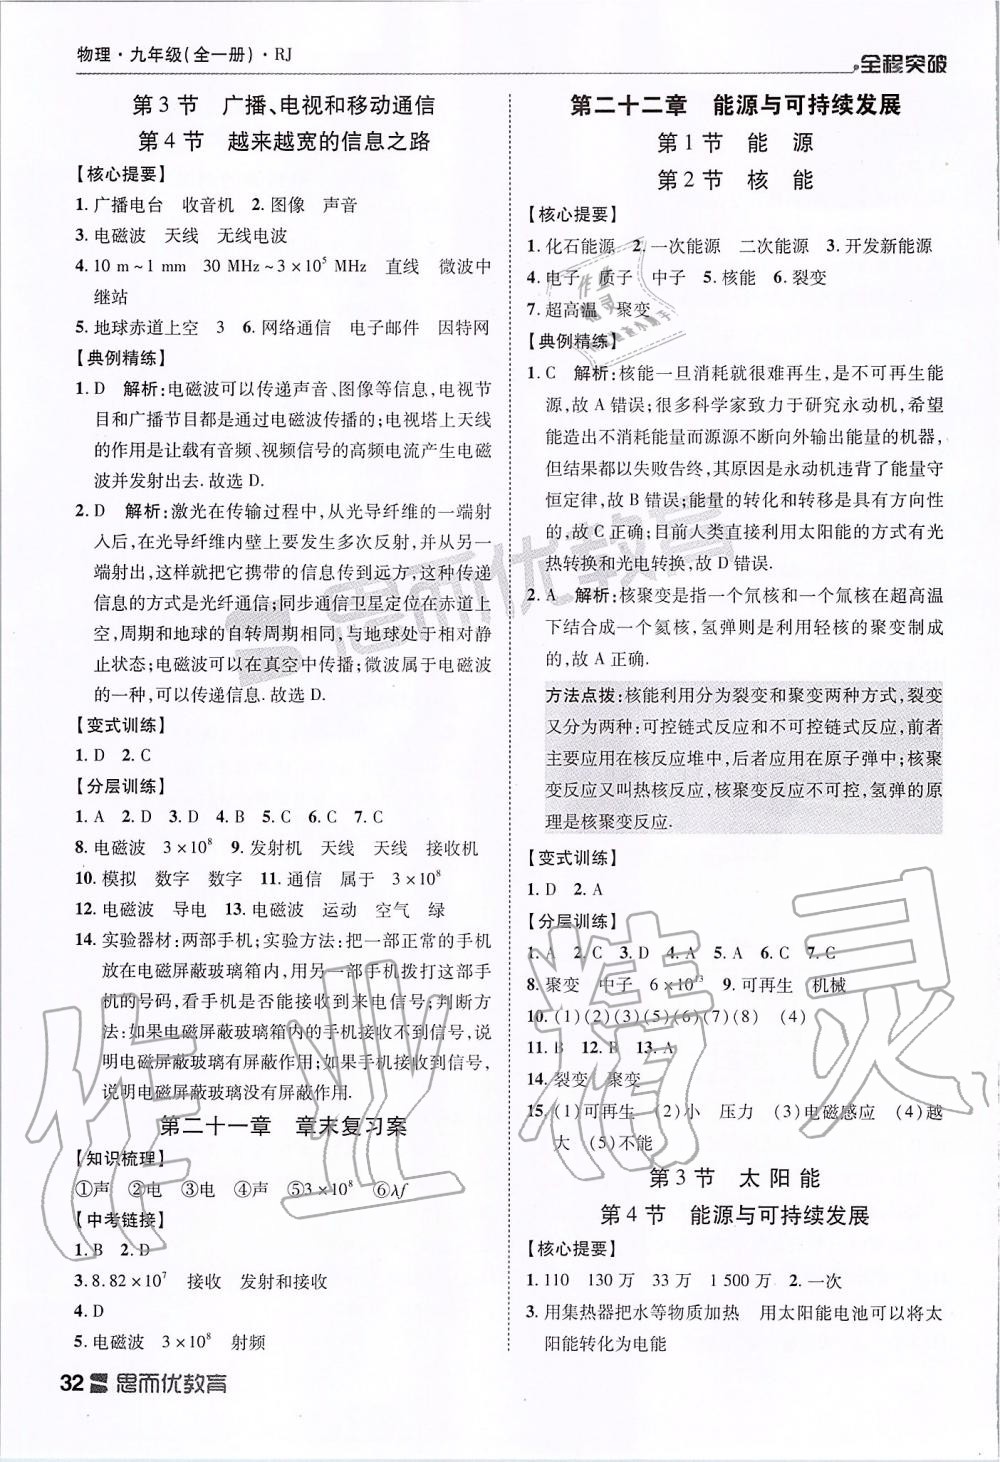 物理·九年级(全一册)·RJ
全程突破
第3节 广播、电视和移动通信
第4节 越来越宽的信息之路
【核心提要】
1. 广播电台 收音机 2. 图像 声音
3. 电磁波 天线 无线电波
4. 10 m~1 mm 30 MHz~3×10⁵ MHz 直线 微波中
继站
5. 地球赤道上空 3 6. 网络通信 电子邮件 因特网
【典例精练】
1. D 解析:电磁波可以传递声音、图像等信息,电视节
目和广播节目都是通过电磁波传播的;电视塔上天线
的作用是让载有音频、视频信号的高频电流产生电磁
波并发射出去.故选 D.
2. D 解析:激光在传输过程中,从光导纤维的一端射
入后,在光导纤维内壁上要发生多次反射,并从另一
端射出,这样就把它携带的信息传到远方,这种传递
信息的方式是光纤通信;同步通信卫星定位在赤道上
空,周期和地球的自转周期相同,与地球处于相对静
止状态;电磁波可以在真空中传播;微波属于电磁波
的一种,可以传递信息.故选 D.
【变式训练】
1. D 2. C
【分层训练】
1. A 2. D 3. D 4. B 5. C 6. C 7. C
8. 电磁波 3×10⁸ 9. 发射机 天线 天线 接收机
10. 模拟 数字 数字 11. 通信 属于 3×10⁸
12. 电磁波 导电 13. 电磁波 运动 空气 绿
14. 实验器材:两部手机;实验方法:把一部正常的手机
放在电磁屏蔽玻璃箱内,用另一部手机拨打这部手
机的号码,看手机是否能接收到来电信号;判断方
法:如果电磁屏蔽玻璃箱内的手机接收不到信号,说
明电磁屏蔽玻璃有屏蔽作用;如果手机接收到信号,
说明电磁屏蔽玻璃没有屏蔽作用.
第二十一章 章末复习案
【知识梳理】
①声 ②电 ③电 ④声 ⑤3×10⁸ ⑥λf
【中考链接】
1. B 2. D
3. 8.82×10⁷ 接收 发射和接收
4. D
5. 电磁波 3×10⁸ 射频
32 思而优教育
第二十二章 能源与可持续发展
第1节 能 源
第2节 核 能
【核心提要】
1. 化石能源 2. 一次能源 二次能源 3. 开发新能源
4. 电子 质子 中子 5. 核能 6. 裂变
7. 超高温 聚变
【典例精练】
1. C 解析:核能一旦消耗就很难再生,是不可再生能
源,故 A 错误;很多科学家致力于研究永动机,希望
能造出不消耗能量而源源不断向外输出能量的机器,
但结果都以失败告终,其原因是永动机违背了能量守
恒定律,故 B 错误;能量的转化和转移是具有方向性
的,故 C 正确;目前人类直接利用太阳能的方式有光
热转换和光电转换,故 D 错误.
2. A 解析:核聚变是指一个氘核和一个氚核在超高温
下结合成一个氦核,氢弹则是利用轻核的聚变制成
的,故 A 正确.
方法点拨:核能利用分为裂变和聚变两种方式,裂变
又分为两种:可控链式反应和不可控链式反应,前者
主要应用在核反应堆中,后者应用在原子弹中;核聚
变反应又叫热核反应,核聚变反应不可控,氢弹的原
理是核聚变反应.
【变式训练】
1. D 2. A
【分层训练】
1. A 2. C 3. D 4. A 5. A 6. C 7. C
8. 聚变 中子 6×10¹³ 9. 可再生 机械
10. (1)(2)(3)(5)(6)(7)(8) (4)
11. B 12. B 13. A
14. 裂变 聚变
15. (1)可再生 (2)小 压力 (3)电磁感应 (4)越
大 (5)不能
第3节 太 阳 能
第4节 能源与可持续发展
【核心提要】
1. 110 130万 33万 1 500万 2. 一次
3. 用集热器把水等物质加热 用太阳能电池可以将太
阳能转化为电能
思而优教育
作业精灵